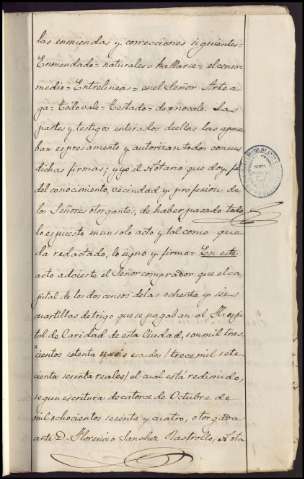 las enmiendas y correcciones siguientes=
Enmendado=naturales=
medio=Entrelineas= el Señor
partes y testigos enterados de ellas las aprue-
ban espresamente y autorizan todos con sus
dichas firmas; y yo el Notario que doy fe
del conocimiento, vecindad y profesion de
los Señores otorgantes, de haber pasado todo
lo espuesto en un solo acto y tal como que-
da redactado, lo signo y firmo= En este
acto advierte el Señor comprador que el ca-
pital de los dos censos de la ochenta y seis
cuartillas de trigo que se pagan en el Hospi-
tal de Caridad de esta Ciudad, son mil tres-
cientos setenta escudos (trece mil sete-
cientos reales) el cual está redimido,
segun escritura de catorce de Octubre de
mil ochocientos sesenta y cuatro, otorgada
ante D. Florencio Sanchez Nota-